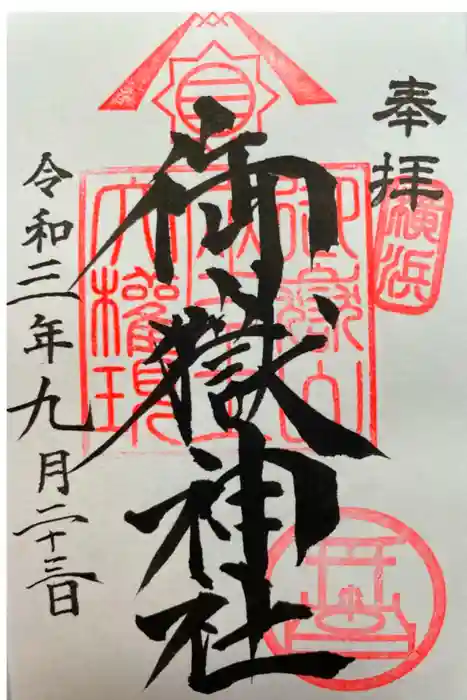 奉拝
横浜
御嶽神社
御嶽山
大権現
令和三年九月二十三日